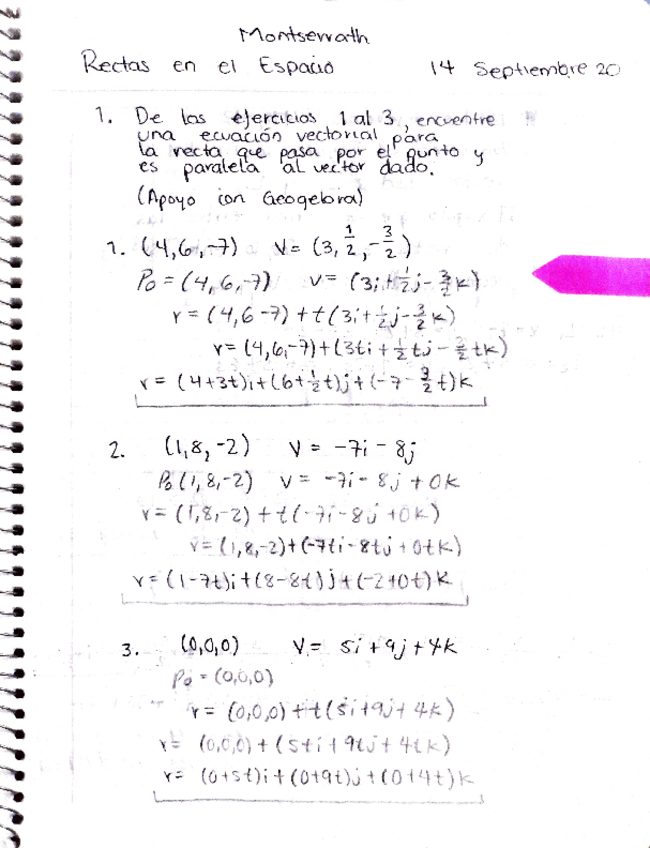 Montserrath
Rectas en el Espacio 14 Septiembre 20
1. De los ejercicios 1 al 3, encuentre
una ecuación vectorial para
la recta que pasa por el punto y
es paralela al vector dado.
(Apoyo con Geogebra)
1. (4,6,-7) V= (3, 1/2, -3/2)
Po = (4,6,-7) v= (3i+1/2j-3/2k)
r = (4,6-7) + t(3i+1/2j-3/2k)
r= (4,6,-7)+(3ti+1/2tj-3/2tk)
r= (4+3t)i+(6+1/2t)j+(-7-3/2t)k
2. (1,8,-2) V = -7i-8j
Po(1,8,-2) v = -7i-8j+0k
r= (1,8,-2)+t(-7i-8j+0k)
r=(1,8,-2)+(-7ti-8tj+0tk)
r=(1-7t)i+(8-8t)j+(-2+0t)k
3. (0,0,0) V= 5i+9j+4k
Po = (0,0,0)
r= (0,0,0)+t(5i+9j+4k)
r= (0,0,0)+(5ti+9tj+4tk)
r= (0+5t)i+(0+9t)j+(0+4t)k